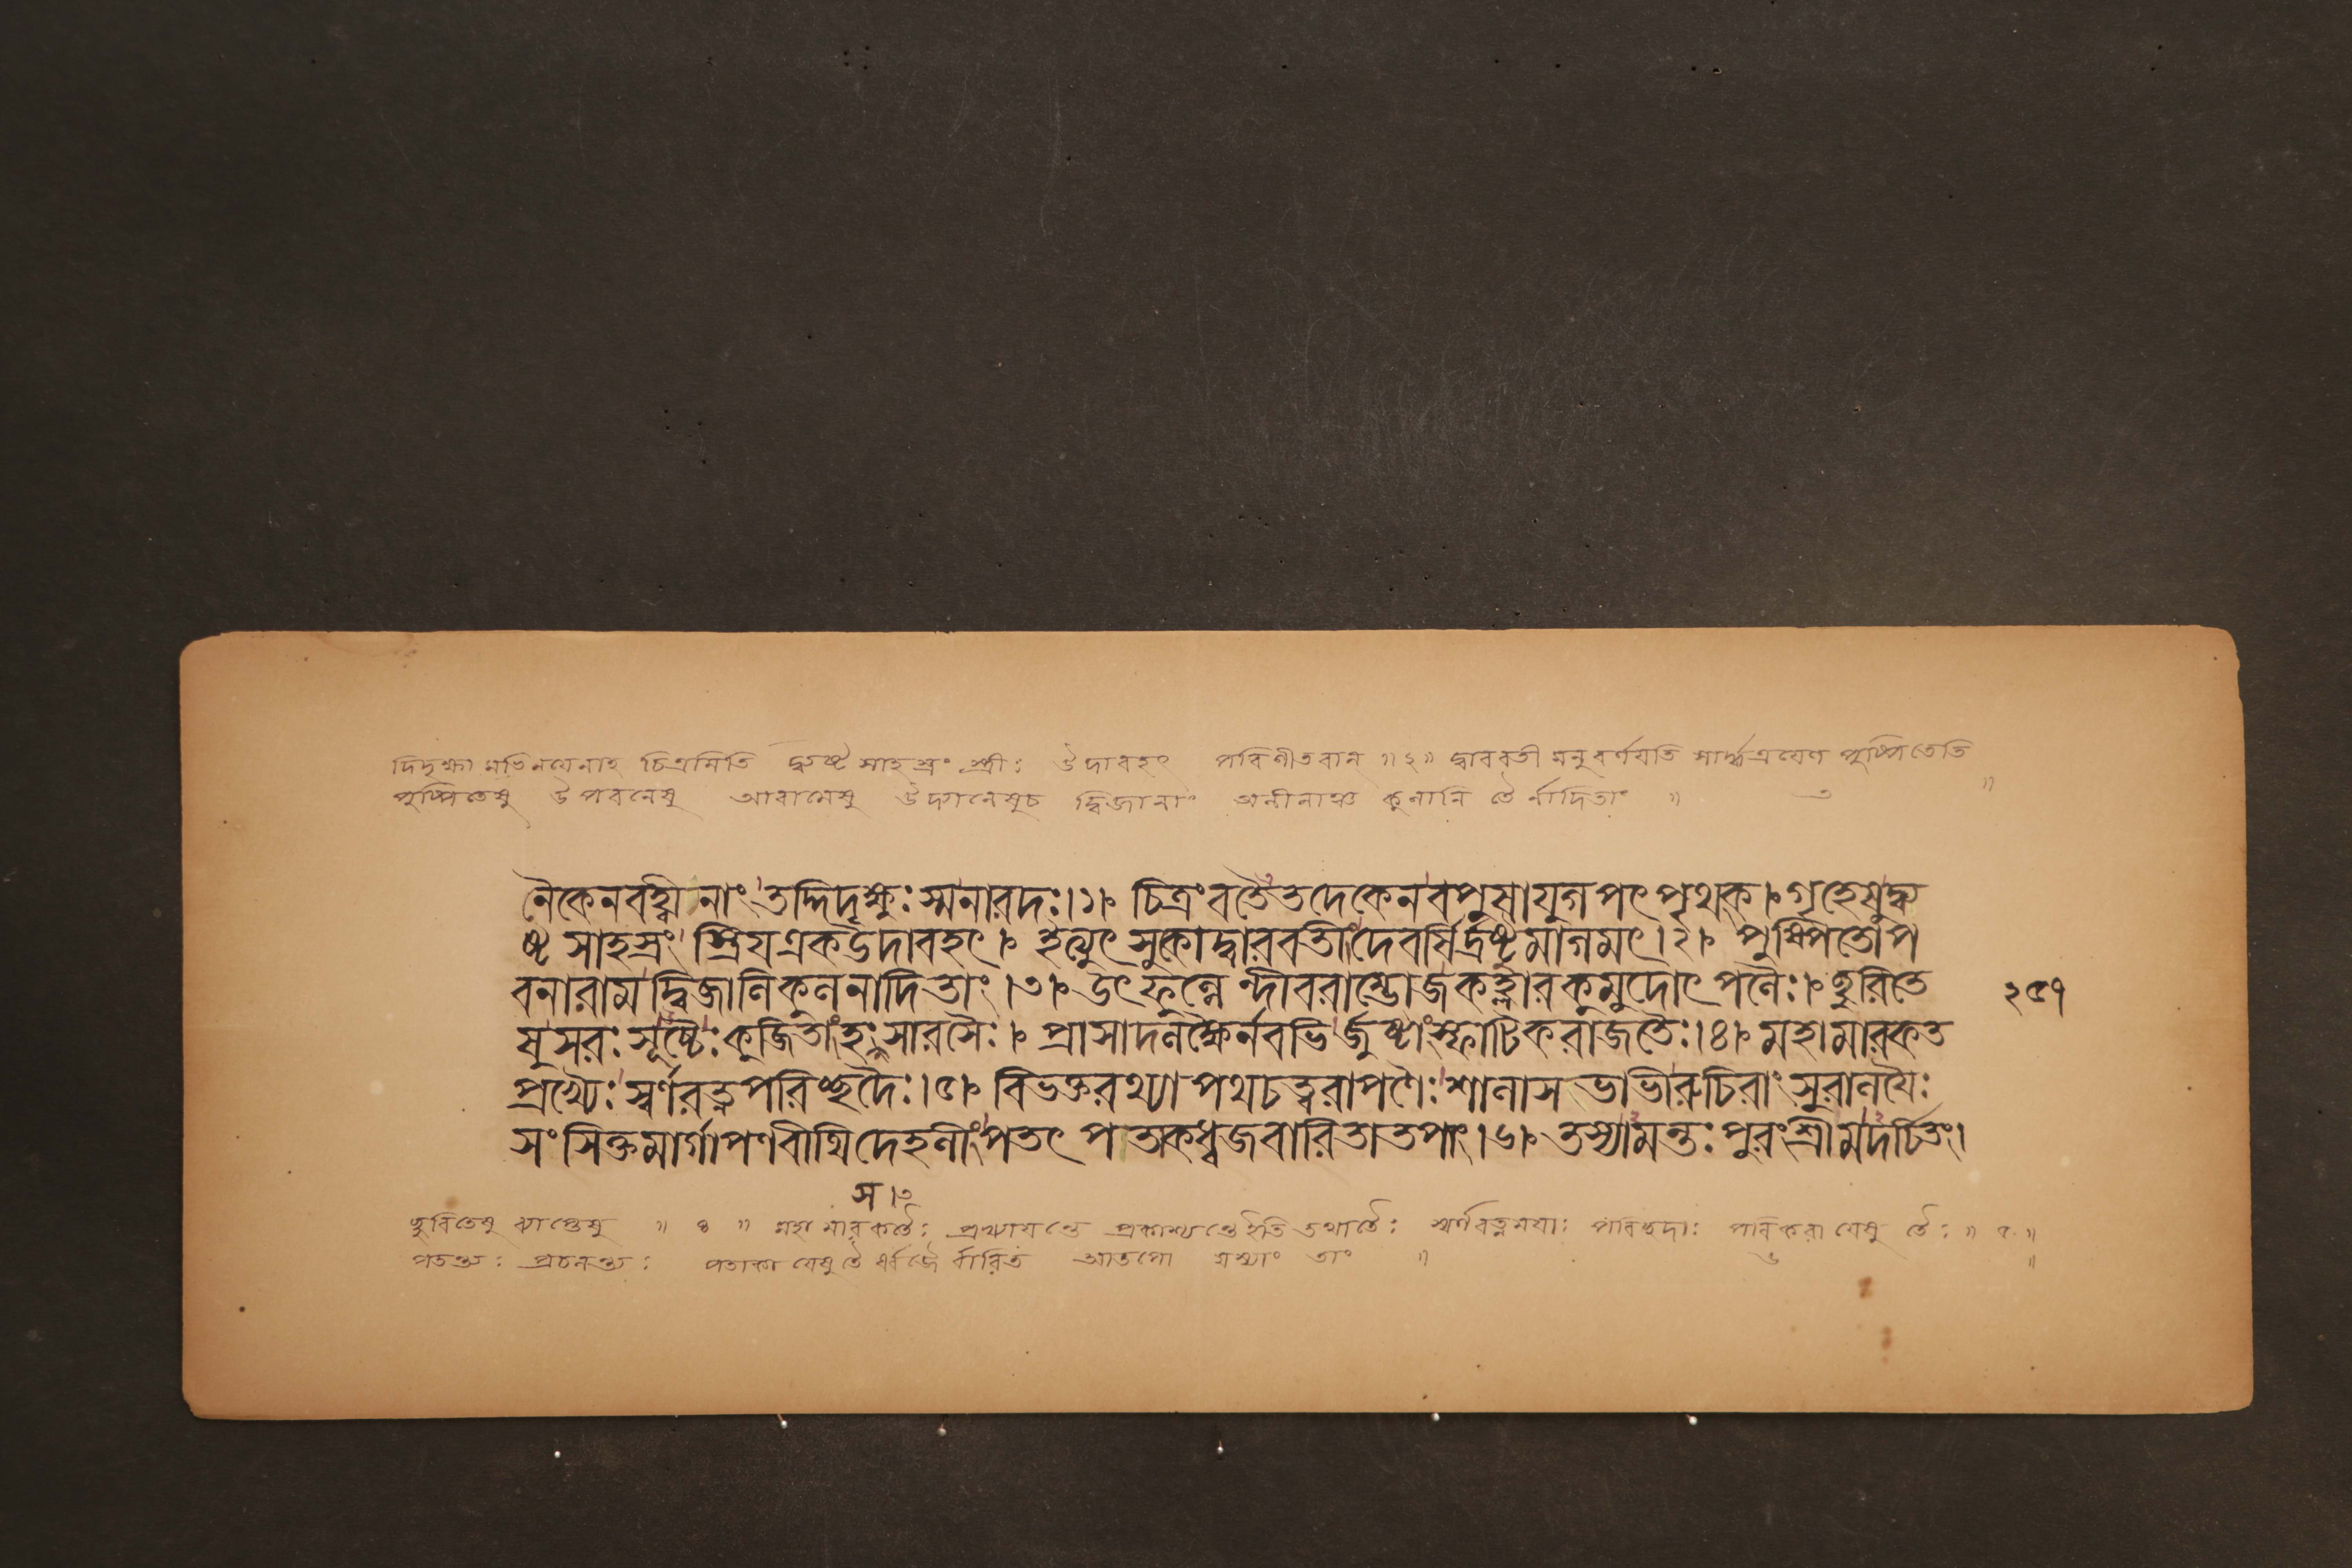 দিদৃক্ষা মভিনয়েনাহ চিত্রমিতি দ্ব্যষ্ট সাহস্রং স্ত্রীঃ উদাবহৎ পরিণীতবান ॥২॥ দ্বারবতী মনুবর্ণযতি সার্দ্ধত্রযেণ পুষ্পিতেতি
পুষ্পিতেষু উপবনেষু আরামেষু উদ্যানেষুচ দ্বিজানাং অলীনাঞ্চ কুলানি তৈর্নাদিতাং ॥ ৩ ॥
নৈকেনবহ্বীনাং তদ্দিদৃক্ষুঃ স্মনারদঃ।১। চিত্রংবতৈতদেকেনবপুষাযুগপৎ পৃথক্।গৃহেষুদ্ব্য
ষ্ট সাহস্রং স্ত্রিযএকউদাবহৎ। ইত্যুৎসুকোদ্বারবতীংদেবর্ষির্দ্রষ্টুমাগমৎ।২। পুষ্পিতোপ
বনারামদ্বিজালিকুলনাদিতাং।৩। উৎফুল্লেন্দীবরাম্ভোজকহ্লারকুমুদোৎপলৈঃ। ছুরিতে
ষুসরঃসূচ্চৈঃকূজিতাংহংসারসৈঃ। প্রাসাদলক্ষৈর্নবভির্জুষ্টাংস্ফাটিকরাজতৈঃ।৪। মহামারকত
প্রখ্যৈঃস্বর্ণরত্নপরিচ্ছদৈঃ।৫। বিভক্তরথ্যাপথচত্বরাপণৈঃশালাসভাভীরুচিরাংসুরালযৈঃ
সংসিক্তমার্গাপণবীথিদেহলীংপতৎ পতাকধ্বজবারিতাতপাং।৬। তস্যামন্তঃপুরংশ্রীমদর্চিতং।
২৫৭
স।৩
ছুরিতেষু ব্যাপ্তেষু ॥ ৪ ॥ মহা মারকতৈঃ প্রখ্যাযন্তে প্রকাশ্যন্তেইতি তথাতৈঃ স্বর্ণরত্নমযাঃ পরিচ্ছদাঃ পরিকরা যেষু তৈঃ ॥ ৫ ॥
পতন্ত্যঃ প্রচলন্ত্যঃ পতাকা যেষুতৈ র্ধ্বজৈ র্বারিত আতপো যস্যাং তাং ॥ ৬ ॥